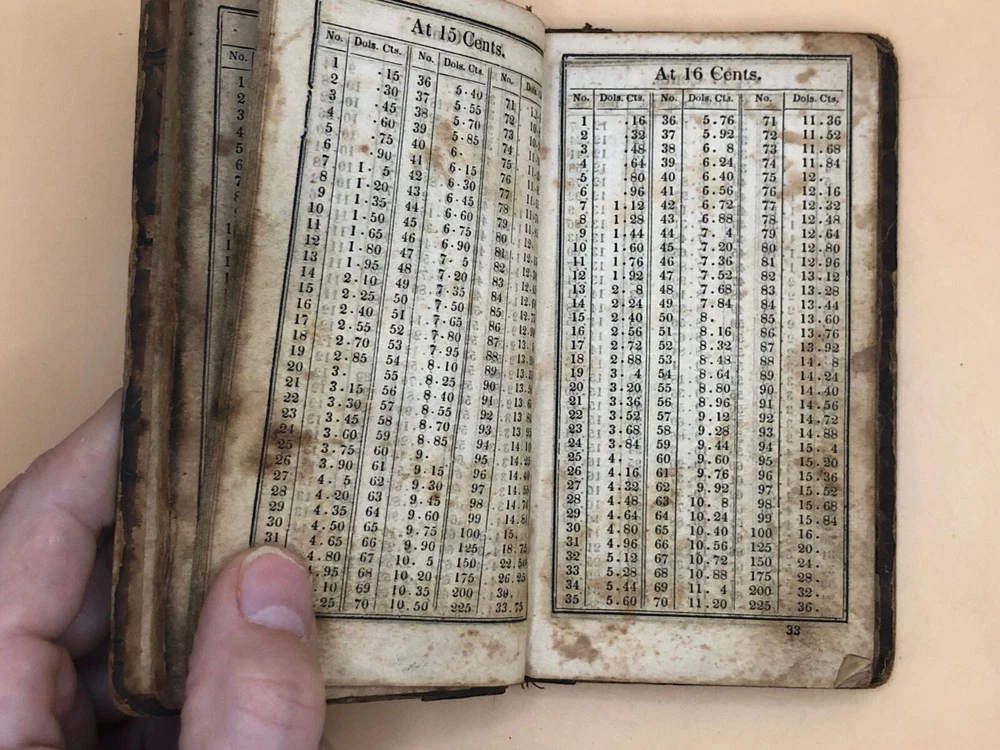 No.
1
2
3
4
5
6
7
8
At 15 Cents.
No. Dols. Cts. No. Dols. Cts. No.
1 .15 36 5.40 71
2 .30 37 5.55 72
3 .45 38 5.70 73
4 .60 39 5.85 74
5 .75 40 6. 75
6 .90 41 6.15 76
7 1. 5 42 6.30 77
8 1.20 43 6.45 78
9 1.35 44 6.60 79
10 1.50 45 6.75 80
11 1.65 46 6.90 81
12 1.80 47 7. 5 82
13 1.95 48 7.20 83
14 2.10 49 7.35 84
15 2.25 50 7.50 85
16 2.40 51 7.65 86
17 2.55 52 7.80 87
18 2.70 53 7.95 88
19 2.85 54 8.10 89
20 3. 55 8.25 90
21 3.15 56 8.40 91
22 3.30 57 8.55 92
23 3.45 58 8.70 93
24 3.60 59 8.85 94
25 3.75 60 9. 95
26 3.90 61 9.15 96
27 4. 5 62 9.30 97
28 4.20 63 9.45 98
29 4.35 64 9.60 99
30 4.50 65 9.75 100 15.
31 4.65 66 9.90 125 18.75
4.80 67 10. 5 150 22.50
.95 68 10.20 175 26.25
.10 69 10.35 200 30.
.25 70 10.50 225 33.75
At 16 Cents.
No. Dols. Cts. No. Dols. Cts. No. Dols. Cts.
1 .16 36 5.76 71 11.36
2 .32 37 5.92 72 11.52
3 .48 38 6. 8 73 11.68
4 .64 39 6.24 74 11.84
5 .80 40 6.40 75 12.
6 .96 41 6.56 76 12.16
7 1.12 42 6.72 77 12.32
8 1.28 43 6.88 78 12.48
9 1.44 44 7. 4 79 12.64
10 1.60 45 7.20 80 12.80
11 1.76 46 7.36 81 12.96
12 1.92 47 7.52 82 13.12
13 2. 8 48 7.68 83 13.28
14 2.24 49 7.84 84 13.44
15 2.40 50 8. 85 13.60
16 2.56 51 8.16 86 13.76
17 2.72 52 8.32 87 13.92
18 2.88 53 8.48 88 14. 8
19 3. 4 54 8.64 89 14.24
20 3.20 55 8.80 90 14.40
21 3.36 56 8.96 91 14.56
22 3.52 57 9.12 92 14.72
23 3.68 58 9.28 93 14.88
24 3.84 59 9.44 94 15. 4
25 4. 60 9.60 95 15.20
26 4.16 61 9.76 96 15.36
27 4.32 62 9.92 97 15.52
28 4.48 63 10. 8 98 15.68
29 4.64 64 10.24 99 15.84
30 4.80 65 10.40 100 16.
31 4.96 66 10.56 125 20.
32 5.12 67 10.72 150 24.
33 5.28 68 10.88 175 28.
34 5.44 69 11. 4 200 32.
35 5.60 70 11.20 225 36.
33